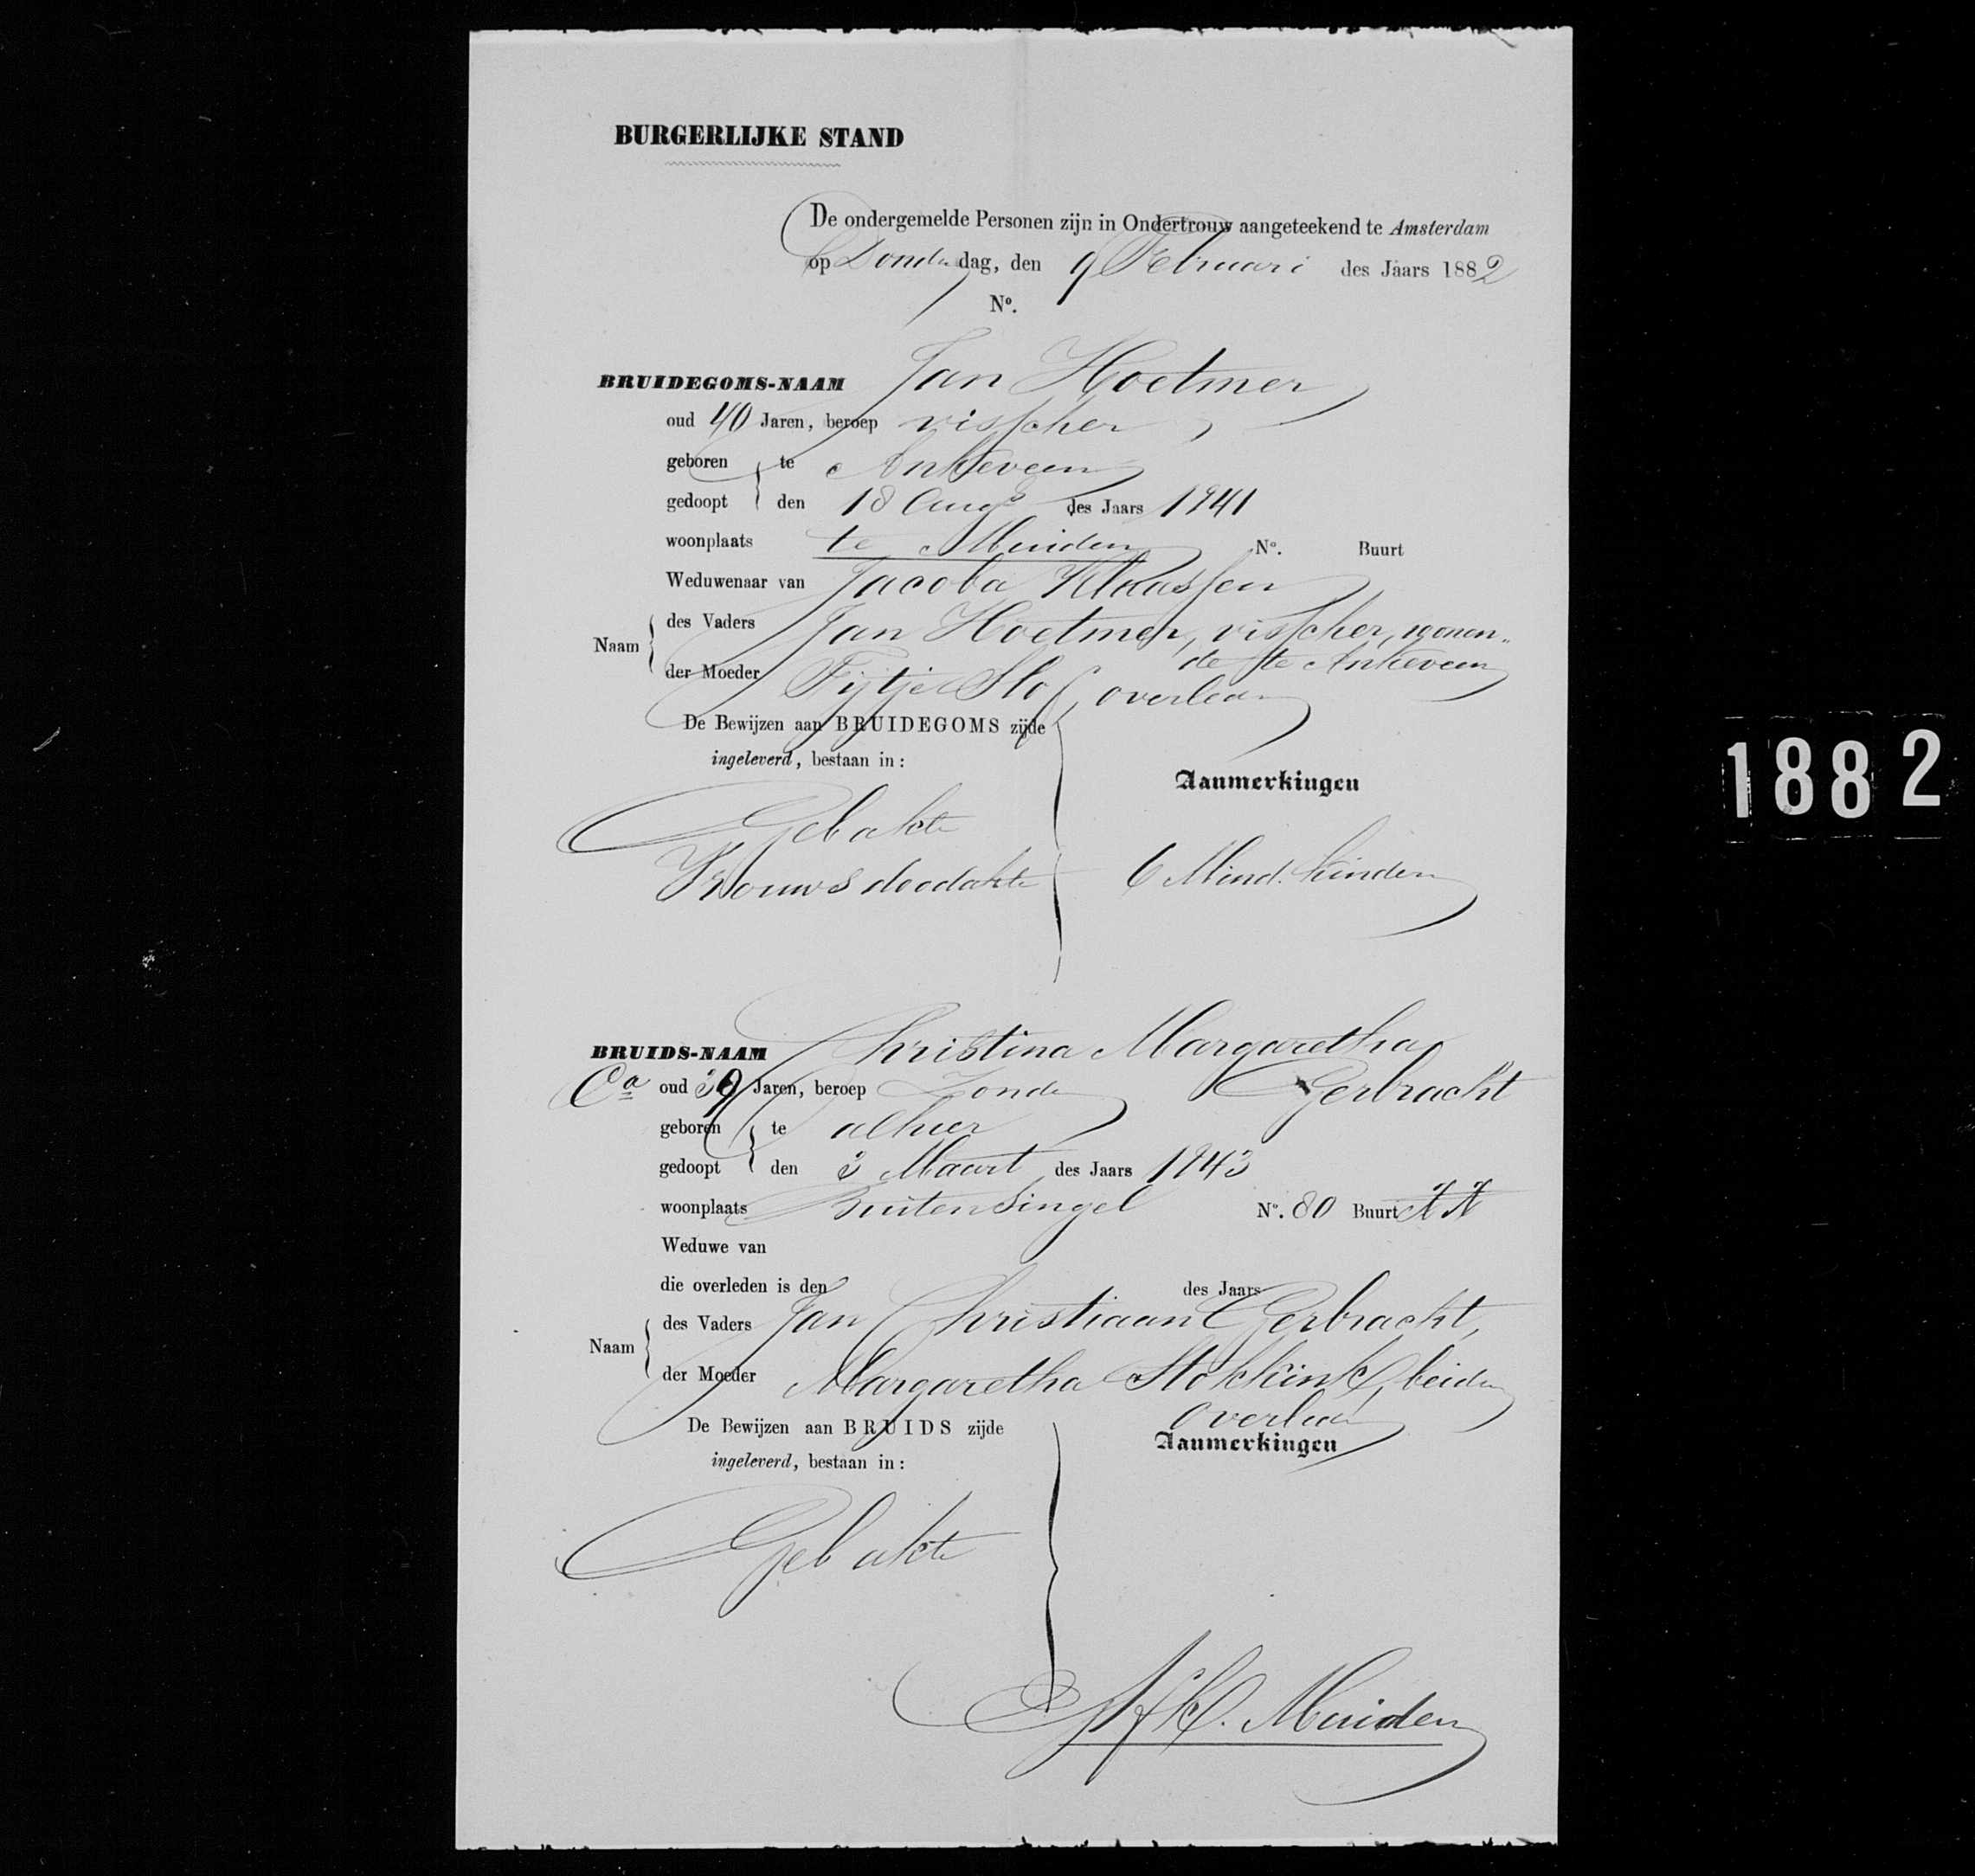 BURGERLIJKE STAND
De ondergemelde Personen zijn in Ondertrouw aangeteekend te Amsterdam
op Donderdag, den 9 Februari des Jaars 1882
No.
BRUIDEGOMS-NAAM Jan Hoetmer
oud 40 Jaren, beroep visscher
geboren te Ankeveen
gedoopt den 18 Augs des Jaars 1841
woonplaats te Muiden No. Buurt
Weduwenaar van Jacoba Klaassen
Naam des Vaders Jan Hoetmer, visscher, wonen-
de te Ankeveen
der Moeder Fijtje Slof, overleden
De Bewijzen aan BRUIDEGOMS zijde
ingeleverd, bestaan in:
Aanmerkingen
Geb akte
Vrouws doodakte
6 Mind. kinderen
BRUIDS-NAAM Christina Margaretha
Gerbracht
Ca oud 39 Jaren, beroep Zonder
geboren te alhier
gedoopt den 3 Maart des Jaars 1843
woonplaats Buitensingel No. 80 Buurt
Weduwe van
die overleden is den des Jaars
Naam des Vaders Jan Christiaan Gerbracht,
der Moeder Margaretha Stokkink, beiden
overleden
De Bewijzen aan BRUIDS zijde
ingeleverd, bestaan in:
Aanmerkingen
Geb akte
Muiden
1882